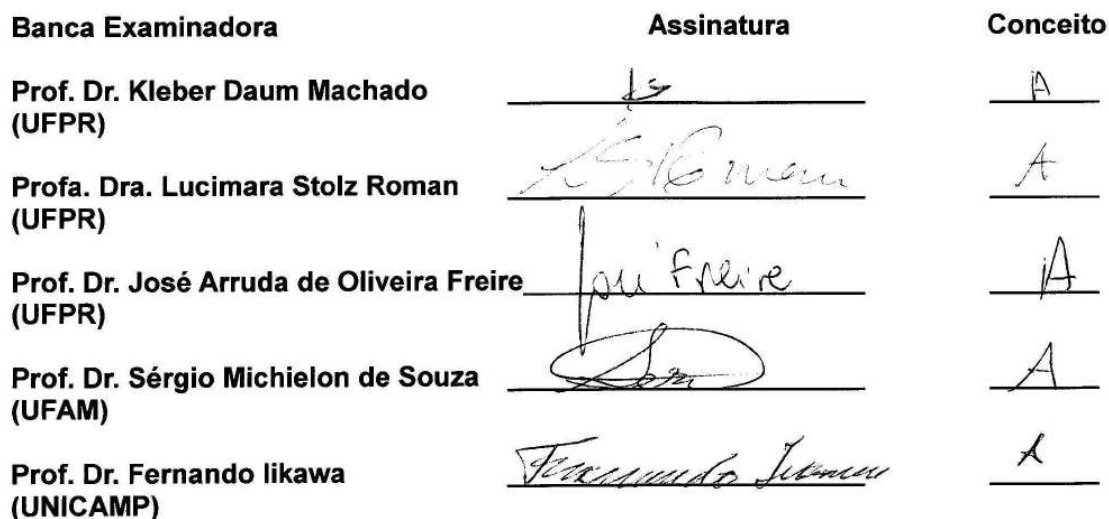 Banca Examinadora Assinatura Conceito
Prof. Dr. Kleber Daum Machado A
(UFPR)
Profa. Dra. Lucimara Stolz Roman A
(UFPR)
Prof. Dr. José Arruda de Oliveira Freire José Freire A
(UFPR)
Prof. Dr. Sérgio Michielon de Souza A
(UFAM)
Prof. Dr. Fernando Iikawa Fernando Iikawa A
(UNICAMP)